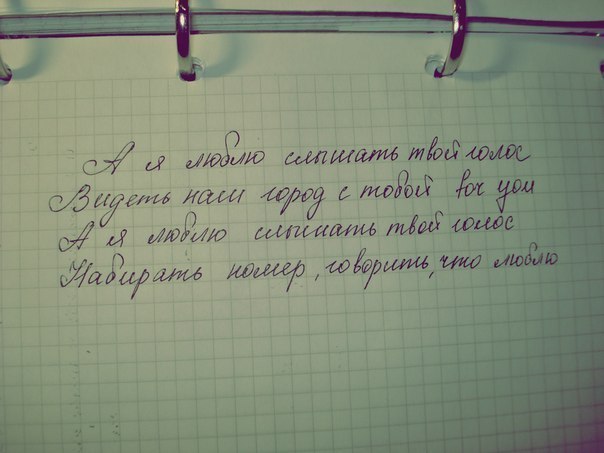 А я люблю слышать твой голос
Видеть наш город с тобой for you
А я люблю слышать твой голос
Набирать номер, говорить, что люблю